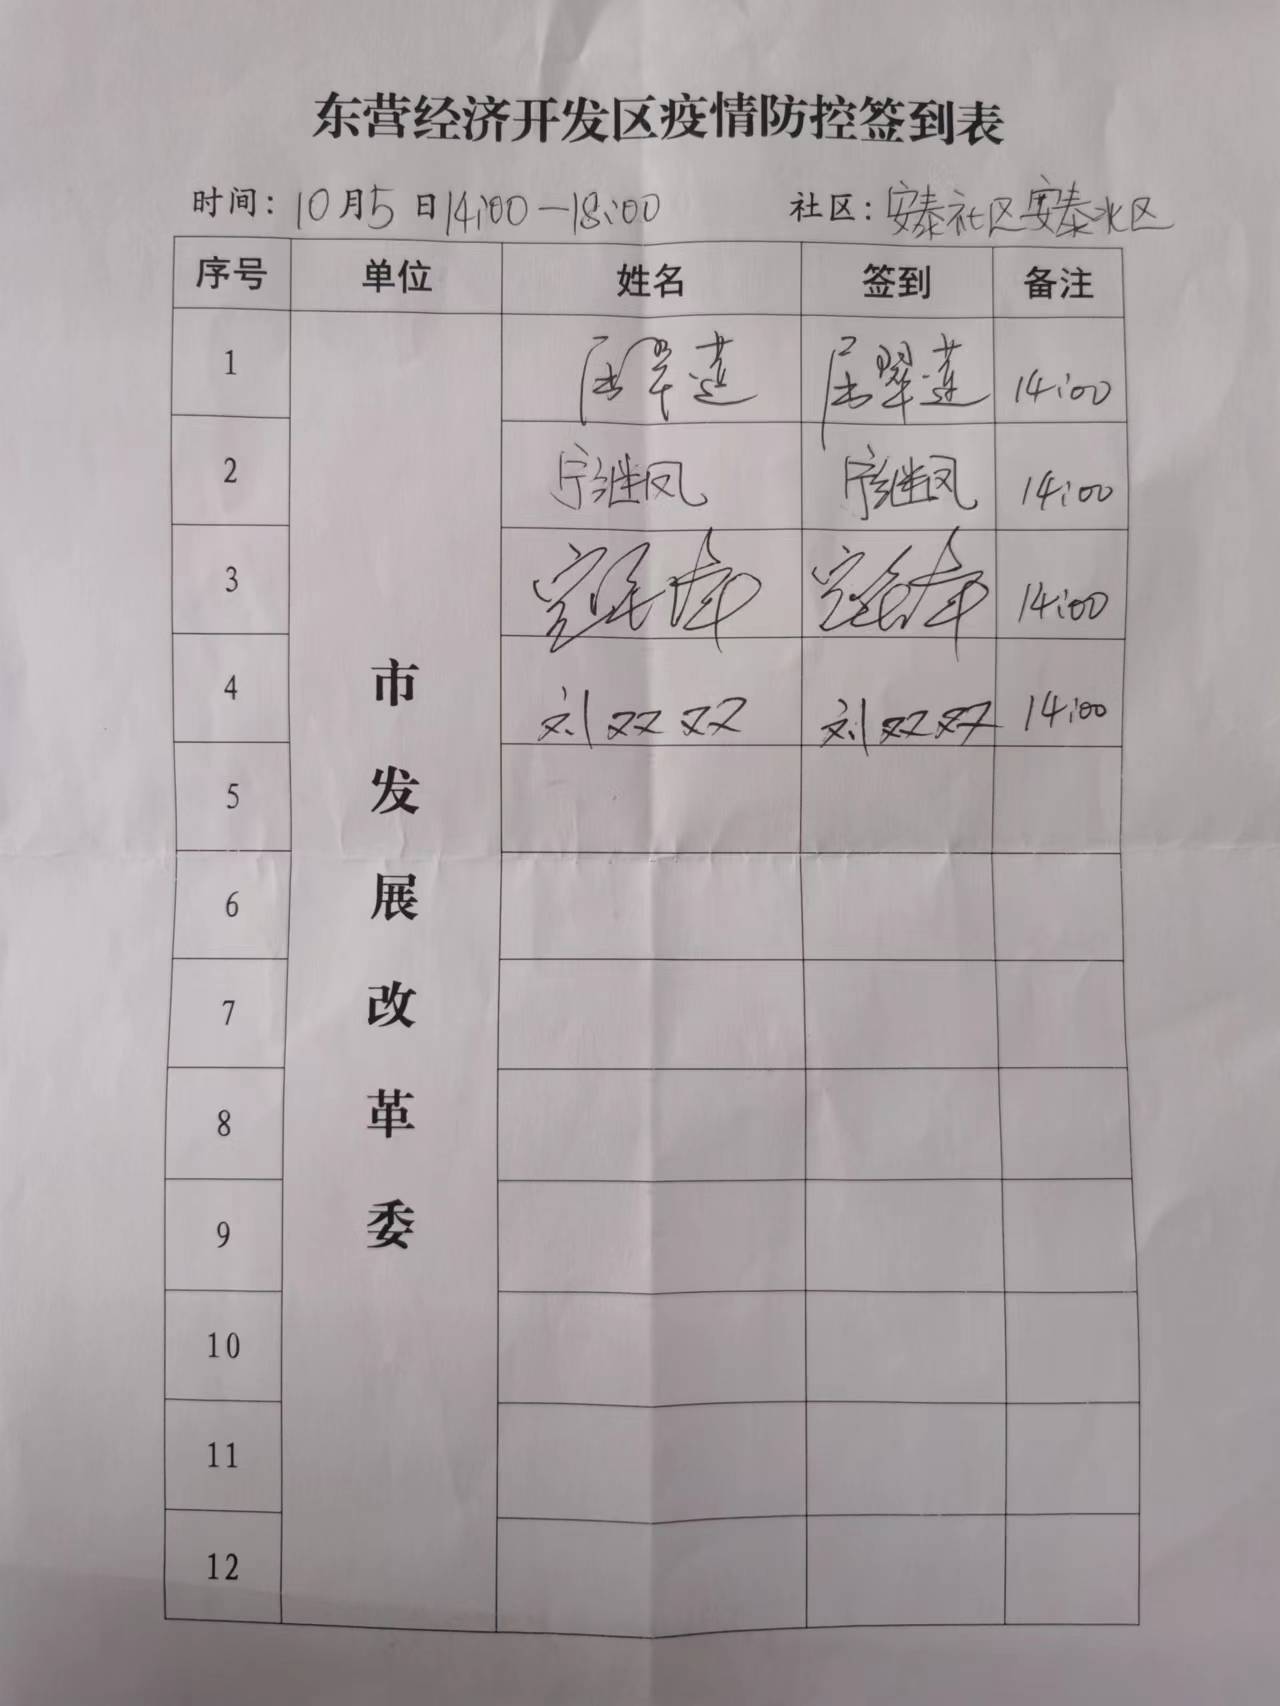 东营经济开发区疫情防控签到表
时间：10月5日14:00—18:00 社区：安泰社区安泰北区
序号 单位 姓名 签到 备注
市发展改革委
1 屈翠莲 屈翠莲 14:00
2 宁继凤 宁继凤 14:00
3 14:00
4 刘双双 刘双双 14:00
5
6
7
8
9
10
11
12